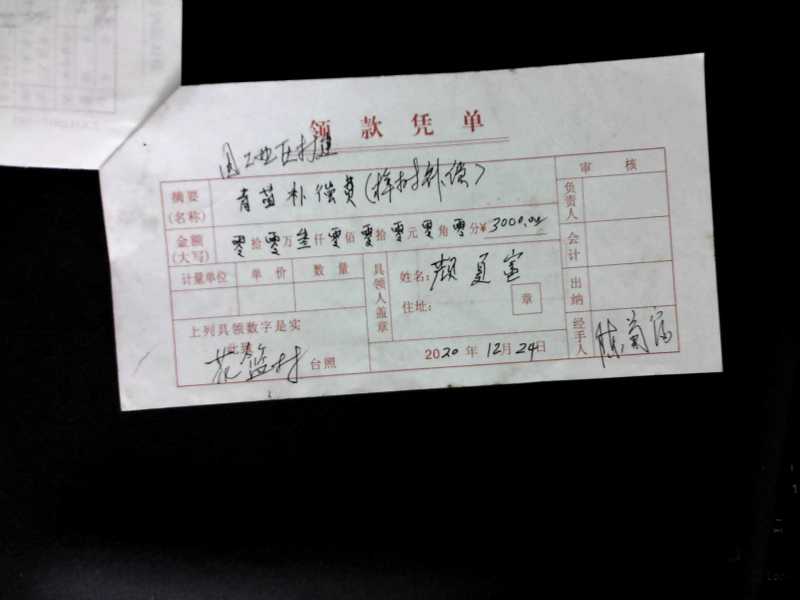 领款凭单
因工业区村道
摘要(名称) 青苗补偿费(样树补偿) 审核
负责人
金额(大写) 零拾零万叁仟零佰零拾零元零角零分¥3000.00
会计
计量单位 单价 数量 具领人盖章 姓名:颜夏富
住址: 章
出纳
上列具领数字是实
此致
花篮村 台照 2020年12月24日 经手人 陈菊富